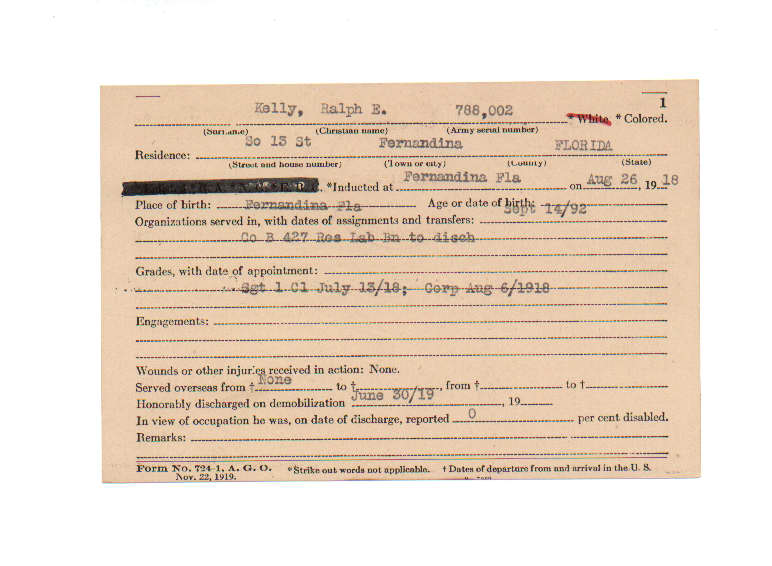 1
Kelly, Ralph E. 788,002 * White, * Colored.
(Surname) (Christian name) (Army serial number)
So 13 St Fernandina FLORIDA
Residence:
(Street and house number) (Town or city) (County) (State)
*Inducted at Fernandina Fla on Aug 26, 1918
Place of birth: Fernandina Fla Age or date of birth: Sept 14/92
Organizations served in, with dates of assignments and transfers:
Co B 427 Res Lab Bn to disch
Grades, with date of appointment:
Sgt 1 Cl July 13/18; Corp Aug 6/1918
Engagements:
Wounds or other injuries received in action: None.
Served overseas from † None to †, from † to †
Honorably discharged on demobilization June 30/19, 19
In view of occupation he was, on date of discharge, reported 0 per cent disabled.
Remarks:
Form No. 724-1, A. G. O. *Strike out words not applicable. † Dates of departure from and arrival in the U. S.
Nov. 22, 1919.